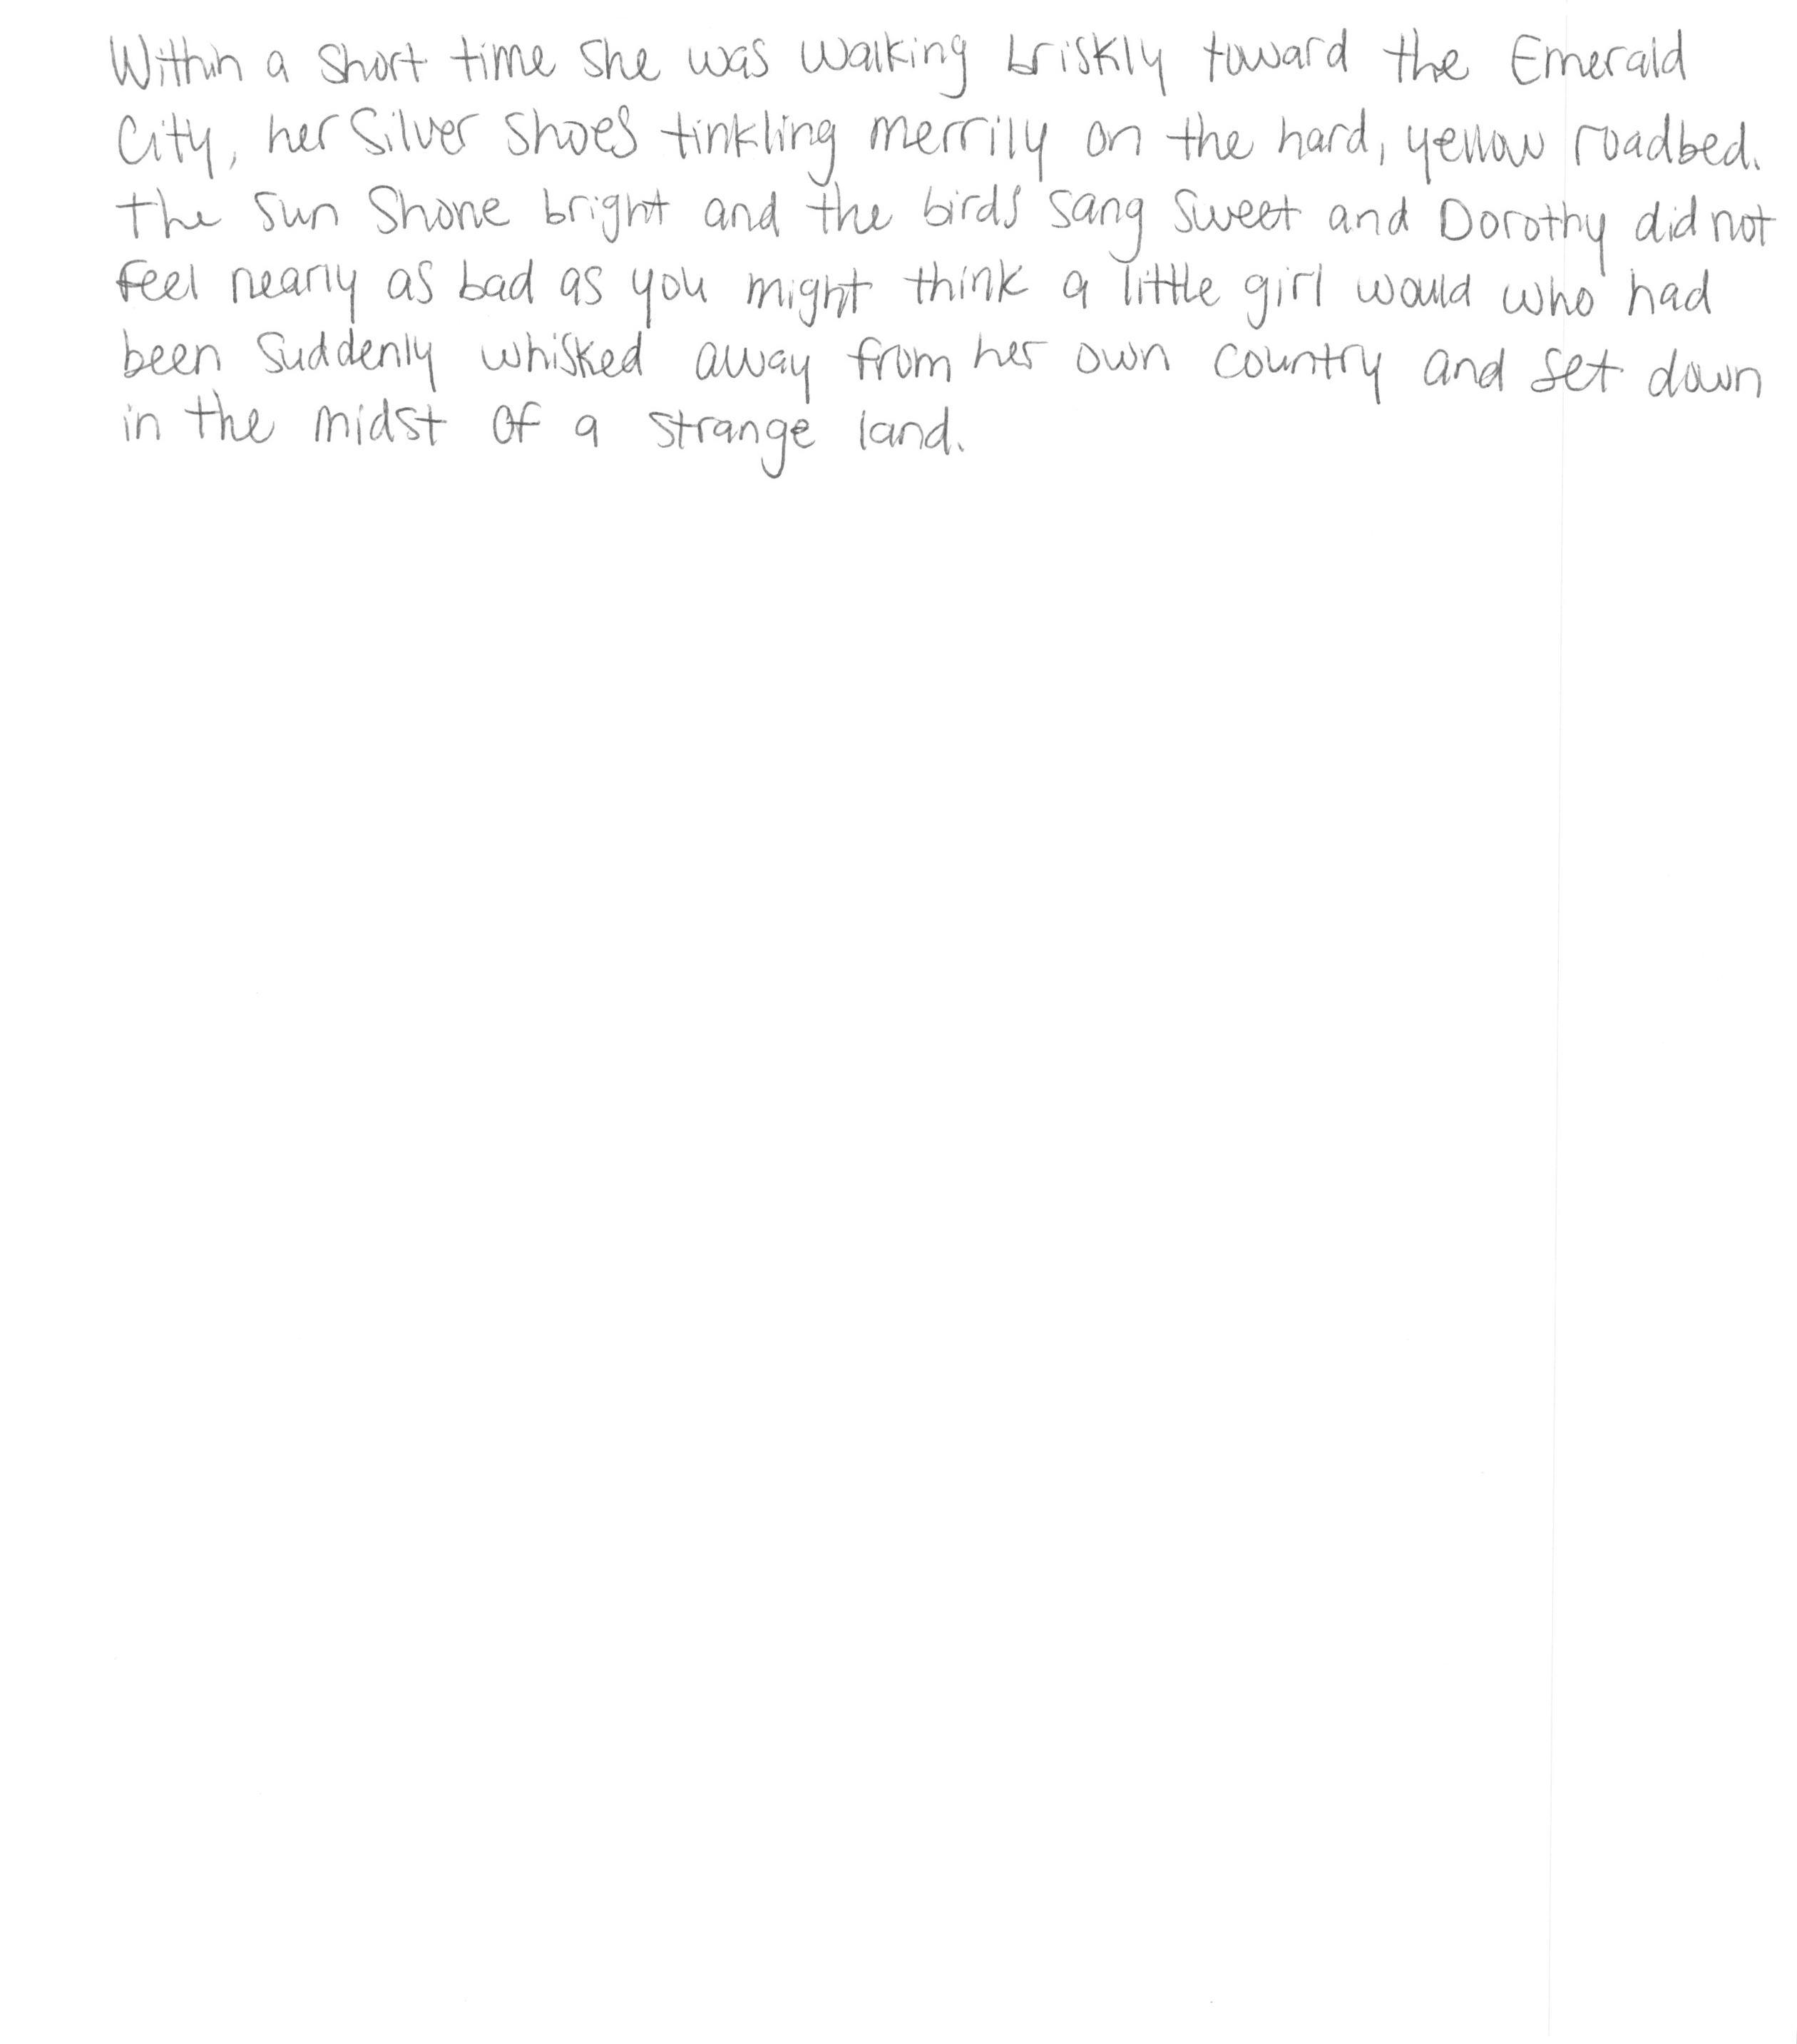 Within a short time she was walking briskly toward the Emerald
City, her Silver Shoes tinkling merrily on the hard, yellow roadbed.
The sun shone bright and the birds sang sweet and Dorothy did not
feel nearly as bad as you might think a little girl would who had
been suddenly whisked away from her own country and set down
in the midst of a strange land.